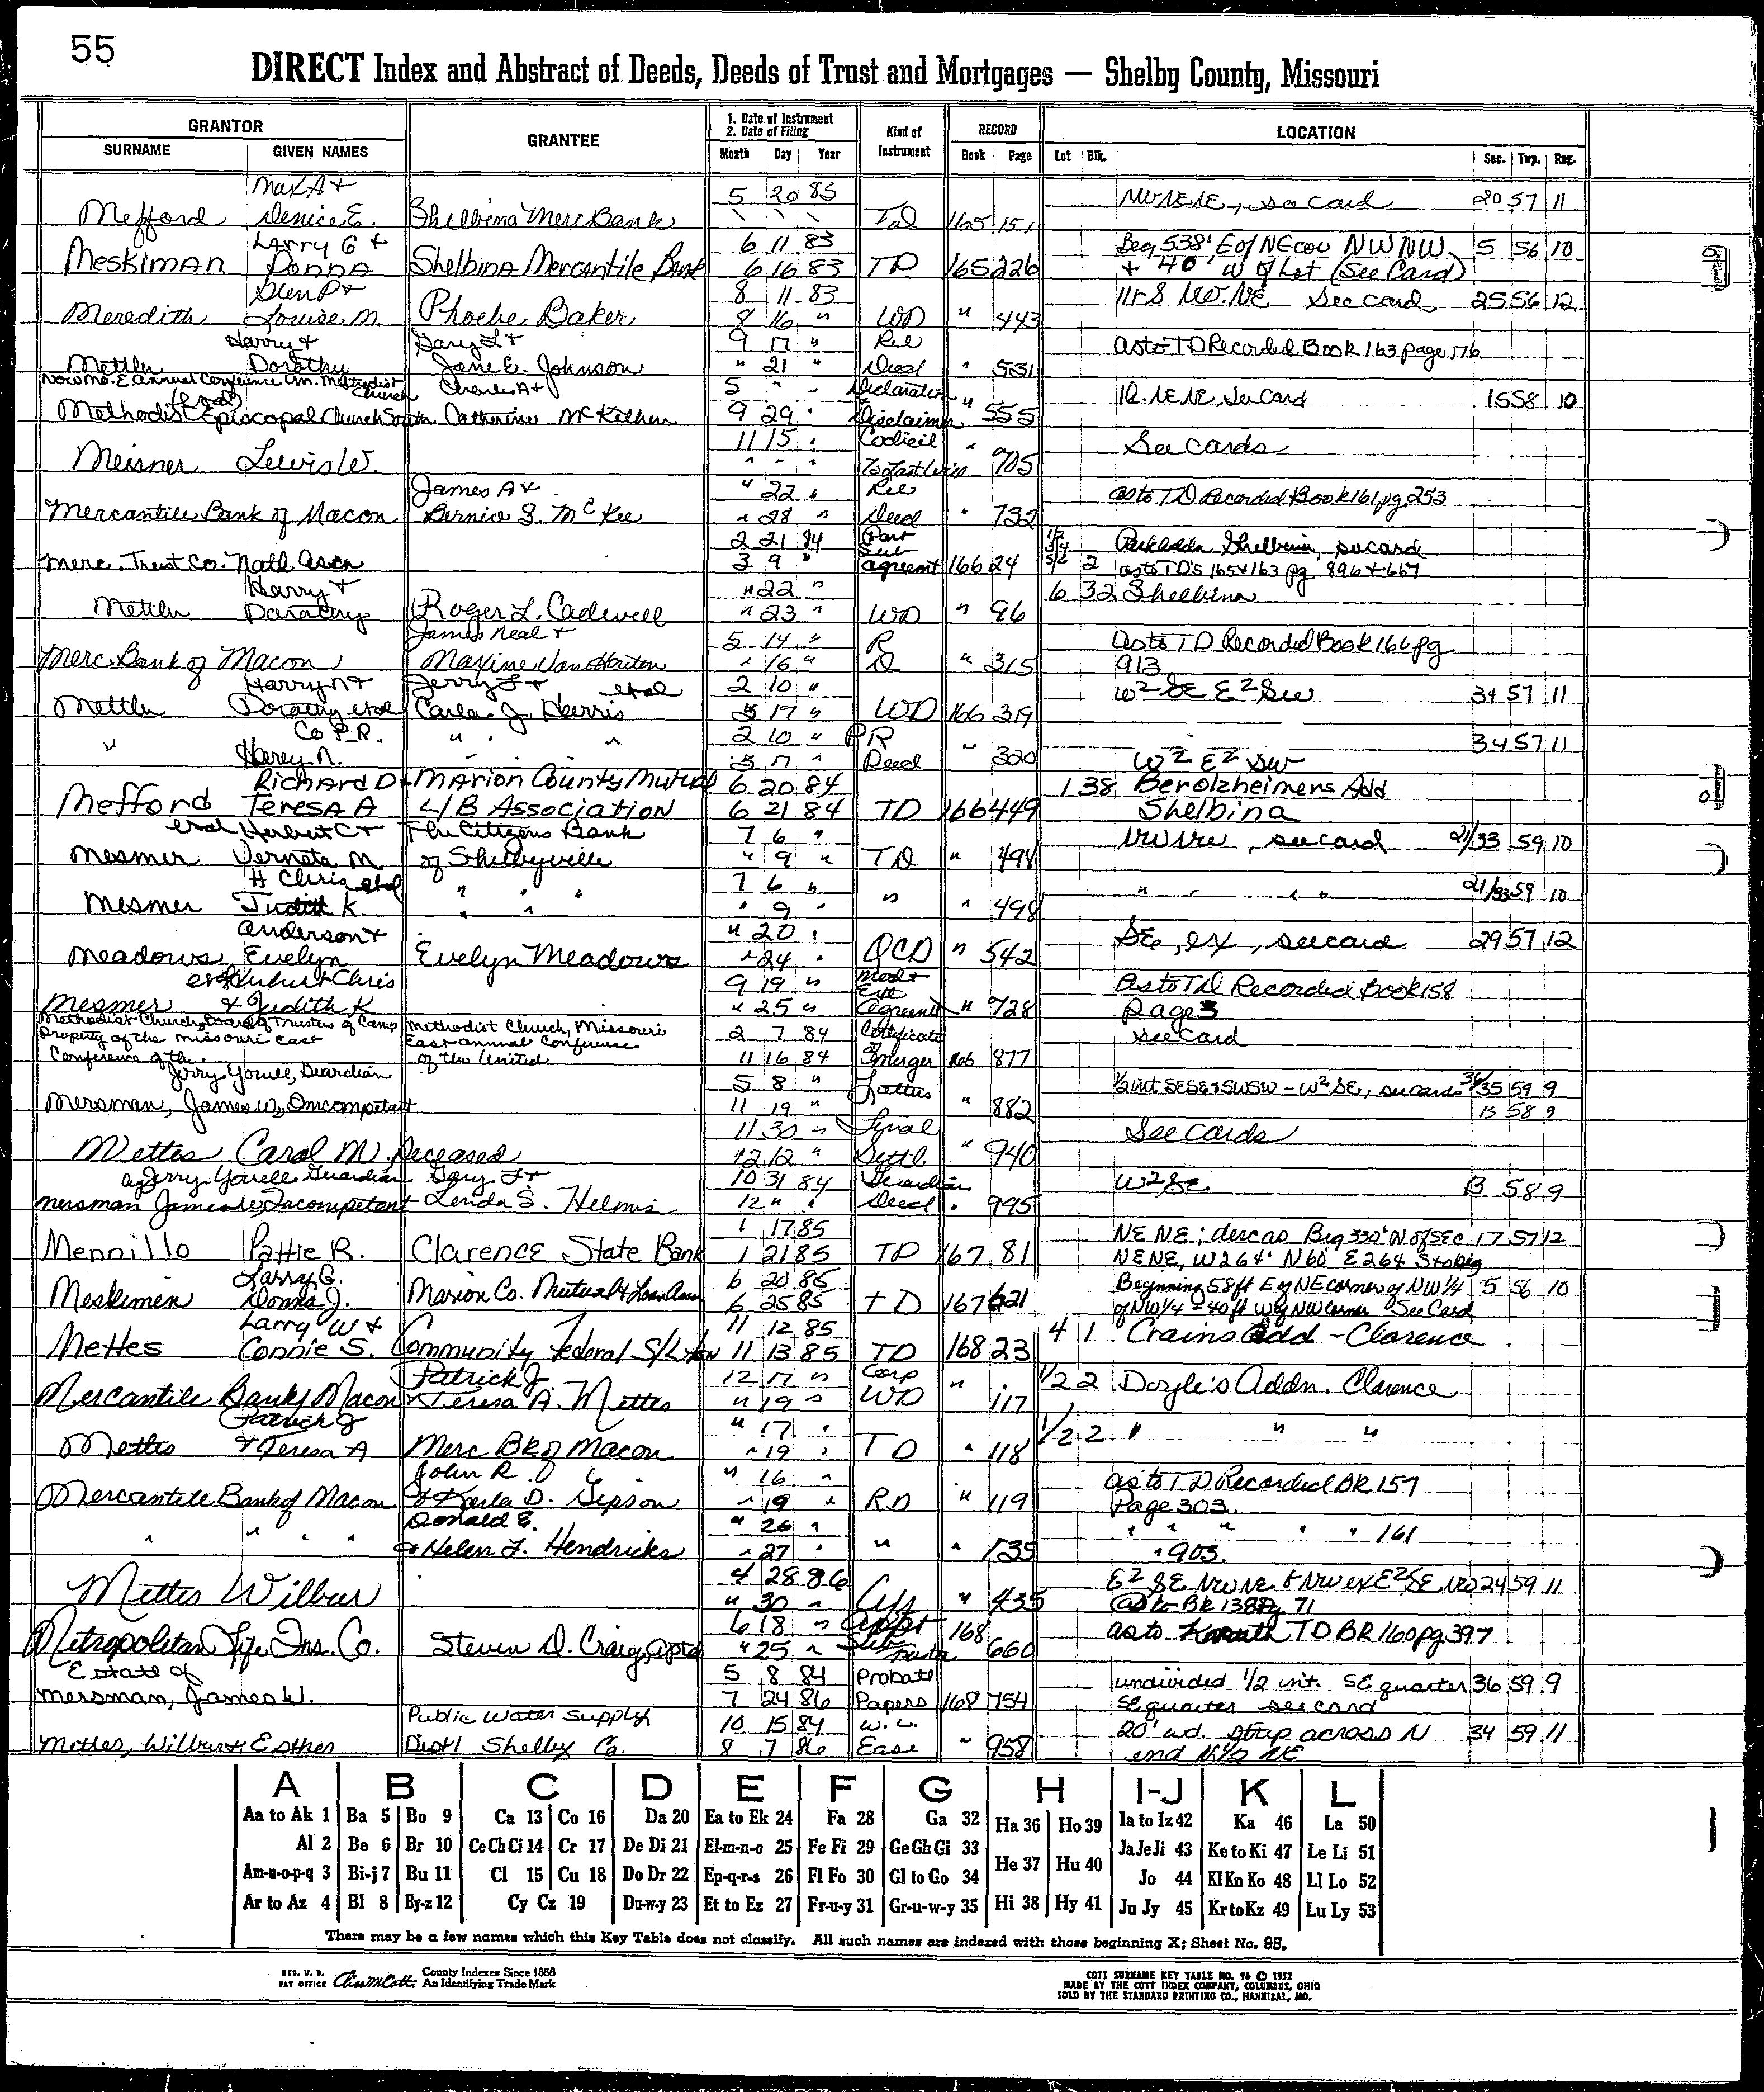 55
DIRECT Index and Abstract of Deeds, Deeds of Trust and Mortgages — Shelby County, Missouri
GRANTOR
SURNAME GIVEN NAMES
GRANTEE
1. Date of Instrument
2. Date of Filing
Month Day Year
Kind of Instrument
RECORD
Book Page
LOCATION
Lot Blk. Sec. Twp. Rng.
Max A + 5 20 83 NW NE NE, see card 20 57 11
Mefford Denice E. Shelbina Merc Bank \ \ \ TD 165 151
Larry G + 6 11 83 Beg 538' E of NE cor NW NW 5 56 10
Meskiman Donna Shelbina Mercantile Bank 6 16 83 TD 165 226 + 40' W of Lot (See Card)
Glen P + 8 11 83 11 r S NW. NE See card 25 56 12
Meredith Louise M. Phoebe Baker 8 16 " WD " 443
Harry + Gary L + 9 17 " Rel as to TD Recorded Book 163 page 176
Mettler Dorothy Jane E. Johnson " 21 " Deed " 531
Now Mo. E. Annual Conference Un. Methodist Church Charles A + 5 " " Declaration 1 a. NE NE, see card 15 58 10
Methodist Episcopal Church South Catherine McKithen 9 29 " Disclaimer " 555
11 15 " Codicil See cards
Meisner Lewis W. " " " To Last Will " 705
James A + " 22 " Rel as to TD Recorded Book 161 pg. 253
Mercantile Bank of Macon Bernice S. McKee " 28 " Deed " 732
2 21 84 Part Sub 1/2 3/4 Park Addn Shelbina, see card
Merc. Trust Co. Natl Assn 3 9 " agreemt 166 24 5/6 2 as to TD's 165 + 163 pg 896 + 667
Harry + " 22 " 6 32 Shelbina
Mettler Dorothy Roger L. Cadwell " 23 " WD " 96
James Neal + 5 14 " R as to TD Recorded Book 166 pg
Merc. Bank of Macon Maxine VanHouten " 16 " D " 315 913
Harry N + Jerry L + etal 2 10 " W² SE E² SW 34 57 11
Mettler Dorothy etal Carla J. Harris 5 17 " WD 166 319
Co P.R. " " " 2 10 " PR 34 57 11
" Harry N. 5 17 " Deed " 320 W² E² SW
Richard D + Marion County Mutual 6 20 84 1 38 Berolzheimers Add
Mefford Teresa A L/B Association 6 21 84 TD 166 449 Shelbina
etal Herbert C + The Citizens Bank 7 6 " NW NE, see card 21/33 59 10
Mesmer Verneta M of Shelbyville " 9 " TD " 494
H Chris etal " " " 7 6 " " " " " 21/33 59 10
Mesmer Judith K. " " " 9 " " " 498
Anderson + " 20 " SE, ex, see card 29 57 12
Meadows Evelyn Evelyn Meadows " 24 " QCD " 542
etal Hubert Chris 9 19 " Mod + Ext As to TD Recorded Book 158
Mesmer & Judith K " 25 " Agreemt " 728 Page 3
Methodist Church, Board of Trustees of Camp Methodist Church, Missouri 2 7 84 Certificate See Card
Property of the Missouri East East Annual Conference
Conference of the of the United 11 16 84 of Merger 166 877
Jerry Yowell, Guardian 5 8 " Letters 1/2 int SE SE & SW SW - W² SE, see cards 36/35 59 9
Mersman, James W., Incompetant 11 19 " " 882 13 58 9
11 30 " Final See cards
Mettes Carol M. Deceased 12 12 " Settl " 940
by Jerry Yowell Guardian Gary L + 10 31 84 Guardian W² SE 13 58 9
Mersman James W Incompetent Lenda S. Helmis 12 " " Deed " 995
1 17 85 NE NE; desc as Beg 330' N of SE c 17 57 12
Mennillo Pattie R. Clarence State Bank 1 21 85 TD 167 81 NE NE, W 264' N 60' E 264 S to beg
Larry G. 6 20 85 Beginning 58 ft E of NE corner of NW 1/4 5 56 10
Meskimen Donna J. Marion Co. Mutual & Loan Assn 6 25 85 TD 167 621 of NW 1/4 - 40 ft W of NW Corner See Card
Larry W + 11 12 85 4 1 Crains Add - Clarence
Mettes Connie S. Community Federal S/L Assn 11 13 85 TD 168 23
Patrick J 12 17 " Corp 1/2 2 Doyle's Addn. Clarence
Mercantile Bank of Macon + Teresa A. Mettes " 19 " WD " 117
Patrick J " 17 " 1/2 2 " " "
Mettes & Teresa A Merc Bk of Macon " 19 " TD " 118
John R. " 16 " as to TD Recorded BK 157
Mercantile Bank of Macon & Karla D. Gipson " 19 " RD " 119 Page 303.
Donald E. " 26 " " " " " " 161
" " " " & Helen L. Hendricks " 27 " " " 135 " 903.
4 28 86 E² SE NW NE & NW ex E² SE NW 24 59 11
Mettes Wilbur " 30 " " 435 as to Bk 138 Pg 71
6 18 " Appt 168 as to TD BK 160 pg. 397
Metropolitan Life Ins. Co. Steven D. Craig, aptd " 25 " Sub Trustee 660
Estate of 5 8 84 Probate undivided 1/2 int. SE quarter 36 59 9
Mersman, James W. 7 24 86 Papers 168 754 SE quarter see card
Public Water Supply 10 15 84 W. L. 20' wd. strip across N 34 59 11
Mettes, Wilbur & Esther Dist 1 Shelby Co. 8 7 86 Ease " 958 end N 1/2 NE
A B C D E F G H I-J K L
Aa to Ak 1 Ba 5 Bo 9 Ca 13 Co 16 Da 20 Ea to Ek 24 Fa 28 Ga 32 Ha 36 Ho 39 Ia to Iz 42 Ka 46 La 50
Al 2 Be 6 Br 10 Ce Ch Ci 14 Cr 17 De Di 21 El-m-n-o 25 Fe Fi 29 Ge Gh Gi 33 He 37 Hu 40 Ja Je Ji 43 Ke to Ki 47 Le Li 51
Am-n-o-p-q 3 Bi-j 7 Bu 11 Cl 15 Cu 18 Do Dr 22 Ep-q-r-s 26 Fl Fo 30 Gl to Go 34 Jo 44 Kl Kn Ko 48 Ll Lo 52
Ar to Az 4 Bl 8 By-z 12 Cy Cz 19 Du-w-y 23 Et to Ez 27 Fr-u-y 31 Gr-u-w-y 35 Hi 38 Hy 41 Ju Jy 45 Kr to Kz 49 Lu Ly 53
There may be a few names which this Key Table does not classify. All such names are indexed with those beginning X; Sheet No. 95.
REG. U. S. PAT OFFICE County Indexes Since 1888 An Identifying Trade Mark
COTT SURNAME KEY TABLE NO. 96 © 1952
MADE BY THE COTT INDEX COMPANY, COLUMBUS, OHIO
SOLD BY THE STANDARD PRINTING CO., HANNIBAL, MO.